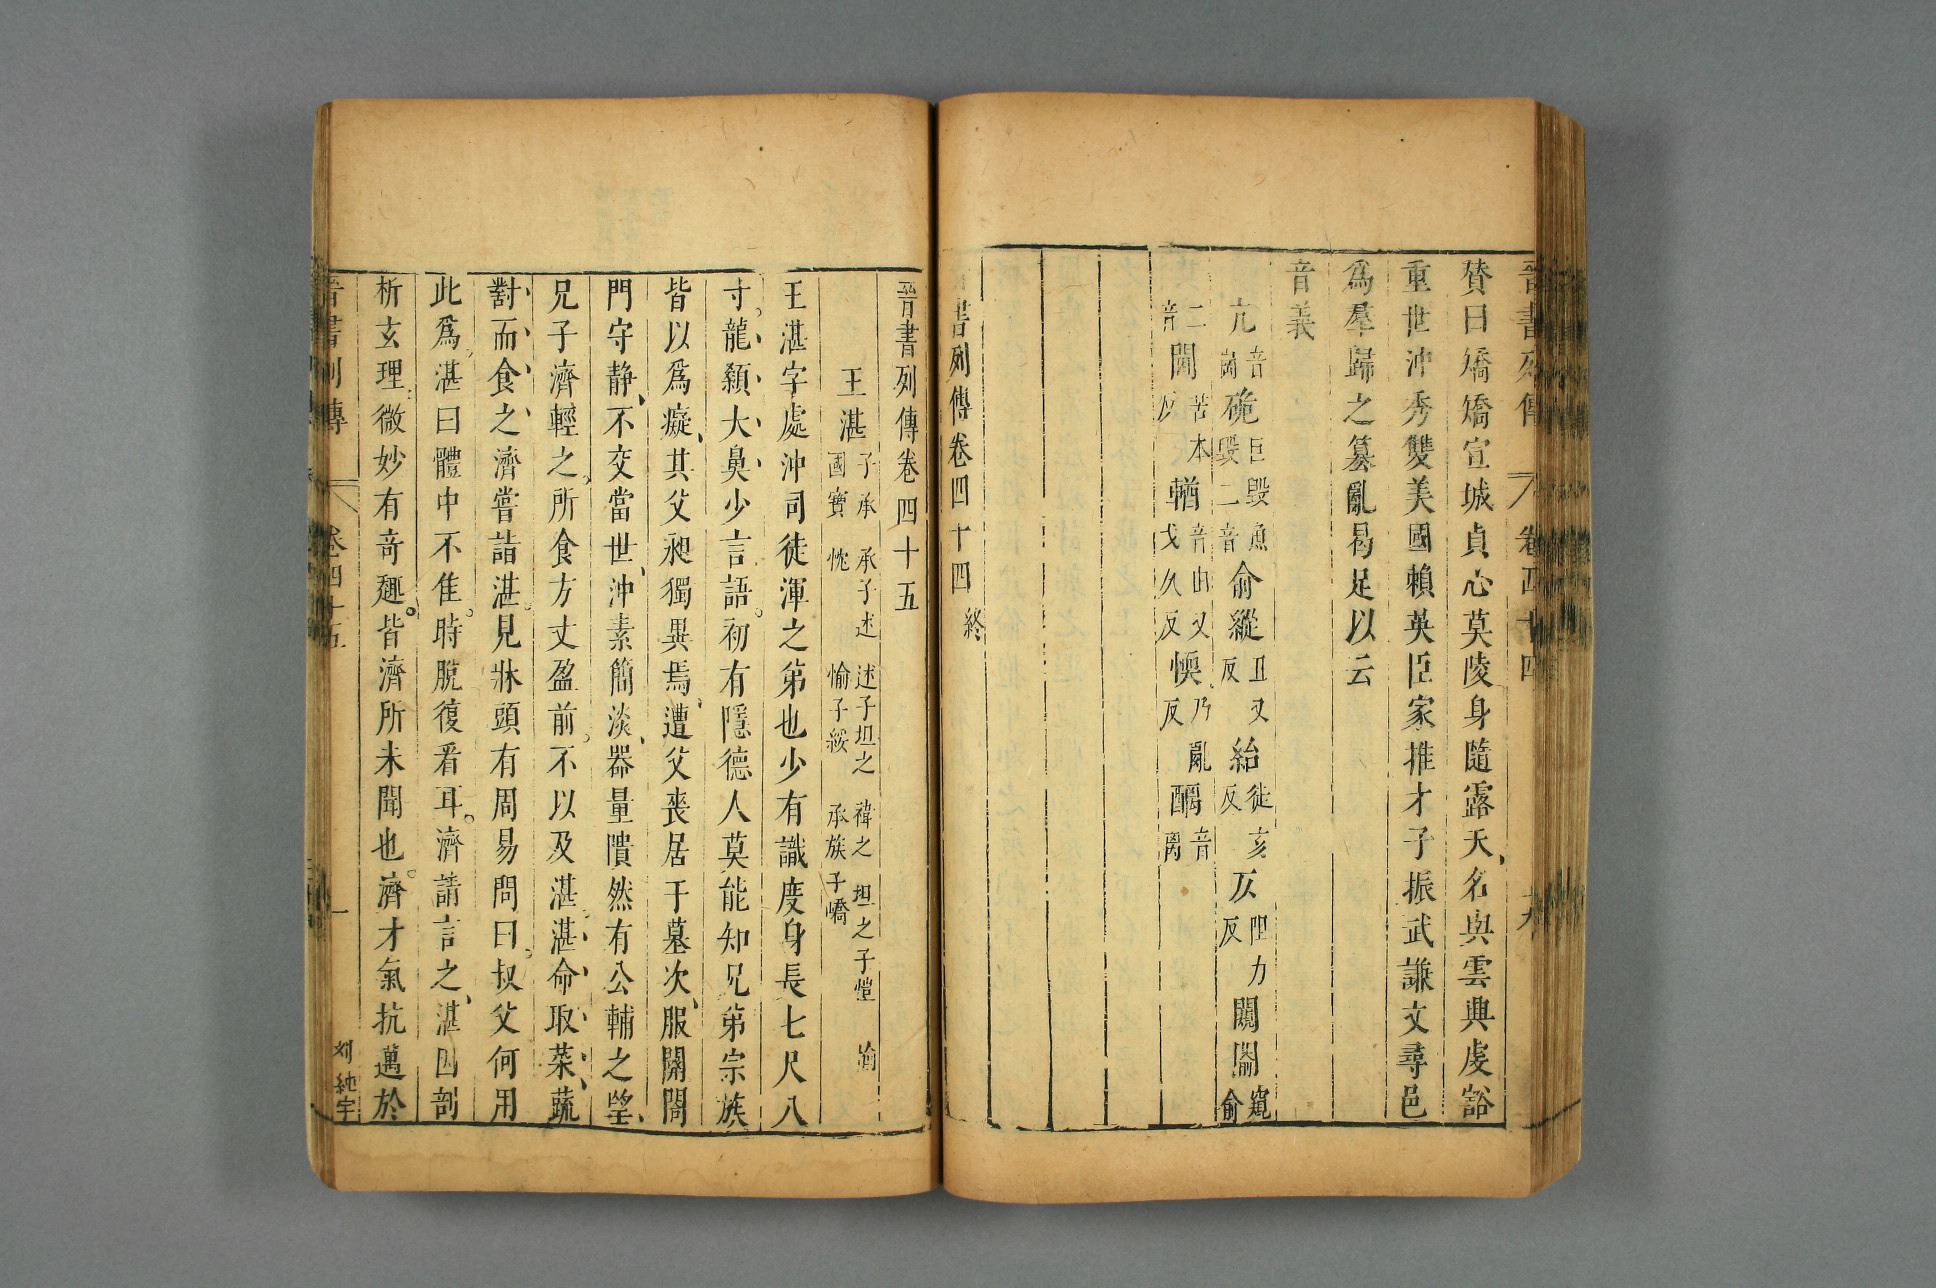 晉書列傳 卷四十四 十九
贊曰矯矯宣城貞心莫陵身隨露夭名與雲興虔豁
重世沖秀雙美國賴英臣家推才子振武謙文尋邑
爲羣歸之篡亂曷足以云
音義
亢音崗硊巨毀魚毀二音俞縱丑又反紿徒亥反仄阻力反闚闟窺俞
二音閫苦本反輶音由又弋久反愞乃亂反酈音离
書列傳卷四十四終
晉書列傳卷四十五
王湛子承 承子述 述子坦之 禕之 坦之子愷 愉
國寶 忱 愉子綏 承族子嶠
王湛字處沖司徒渾之弟也少有識度身長七尺八
寸龍顙大鼻少言語初有隱德人莫能知兄弟宗族
皆以爲癡其父昶獨異焉遭父喪居于墓次服闋闔
門守静不交當世沖素簡淡器量隤然有公輔之望
兄子濟輕之所食方丈盈前不以及湛湛命取菜蔬
對而食之濟嘗詣湛見牀頭有周易問曰叔父何用
此爲湛曰體中不佳時脫復看耳濟請言之湛因剖
析玄理微妙有奇趣皆濟所未聞也濟才氣抗邁於
晉書列傳 卷四十五 一 刘純宇